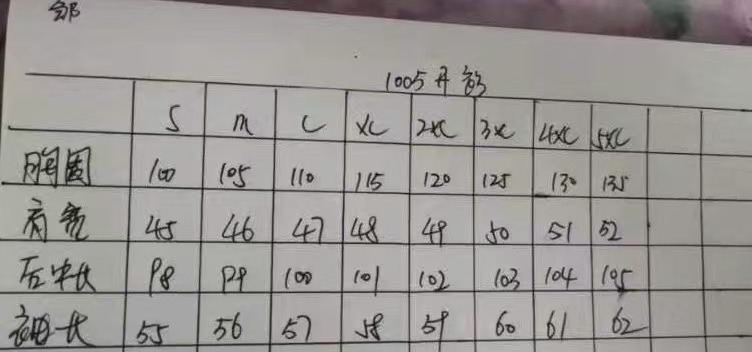 邹
1005开衫
S M L XL 2XL 3XL 4XL 5XL
胸围 100 105 110 115 120 125 130 135
肩宽 45 46 47 48 49 50 51 52
后中长 98 99 100 101 102 103 104 105
袖长 55 56 57 58 59 60 61 62